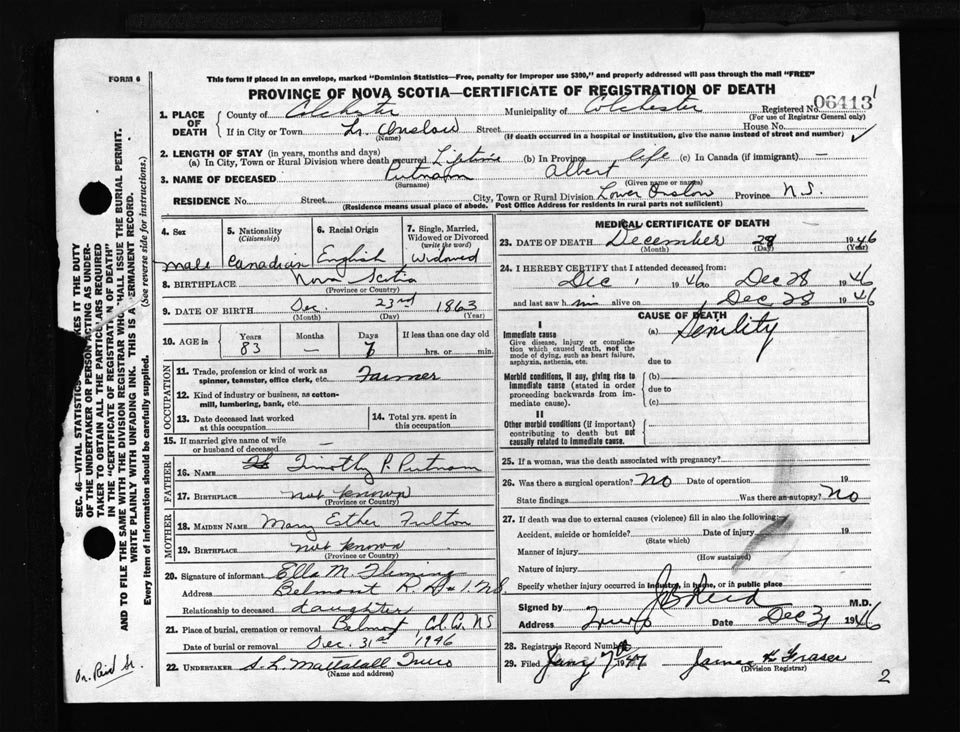 FORM 6
This form if placed in an envelope, marked "Dominion Statistics—Free, penalty for improper use $300," and properly addressed will pass through the mail "FREE"
PROVINCE OF NOVA SCOTIA—CERTIFICATE OF REGISTRATION OF DEATH
1. PLACE OF DEATH County of Colchester Municipality of Colchester Registered No. 06413
(For use of Registrar General only)
If in City or Town Lr. Onslow Street House No.
(Name) (If death occurred in a hospital or institution, give the name instead of street and number)
2. LENGTH OF STAY (in years, months and days)
(a) In City, Town or Rural Division where death occurred Lifetime (b) In Province life (c) In Canada (if immigrant) —
3. NAME OF DECEASED Putnam Albert
(Surname) (Given name or names)
RESIDENCE No. Street City, Town or Rural Division Lower Onslow Province N.S.
(Residence means usual place of abode. Post Office Address for residents in rural parts not sufficient)
4. Sex 5. Nationality (Citizenship) 6. Racial Origin 7. Single, Married, Widowed or Divorced (write the word)
male Canadian English Widowed
8. BIRTHPLACE Nova Scotia
(Province or Country)
9. DATE OF BIRTH Dec. 23rd 1863
(Month) (Day) (Year)
10. AGE in Years Months Days If less than one day old
83 — hrs. or min.
OCCUPATION
11. Trade, profession or kind of work as spinner, teamster, office clerk, etc. Farmer
12. Kind of industry or business, as cotton-mill, lumbering, bank, etc.
13. Date deceased last worked at this occupation
14. Total yrs. spent in this occupation
15. If married give name of wife or husband of deceased
FATHER
16. NAME Timothy P. Putnam
17. BIRTHPLACE not known
(Province or Country)
MOTHER
18. MAIDEN NAME Mary Esther Fulton
19. BIRTHPLACE not known
(Province or Country)
20. Signature of informant Ella M. Fleming
Address Belmont R.R. #1. N.S.
Relationship to deceased daughter
21. Place of burial, cremation or removal Belmont Col. Co. N.S
Date of burial or removal Dec. 31st 1946
22. UNDERTAKER Truro
(Name and address)
MEDICAL CERTIFICATE OF DEATH
23. DATE OF DEATH December 28 1946
(Month) (Day) (Year)
24. I HEREBY CERTIFY that I attended deceased from:
Dec 1 1946 to Dec 28 1946
and last saw him alive on Dec 28 1946
CAUSE OF DEATH
I
Immediate cause (a) Senility
Give disease, injury or complication which caused death, not the mode of dying, such as heart failure, asphyxia, asthenia, etc.
due to
Morbid conditions, if any, giving rise to immediate cause (stated in order proceeding backwards from immediate cause). (b)
due to
(c)
II
Other morbid conditions (if important) contributing to death but not causally related to immediate cause.
25. If a woman, was the death associated with pregnancy?
26. Was there a surgical operation? No Date of operation 19
State findings Was there an autopsy? No
27. If death was due to external causes (violence) fill in also the following:
Accident, suicide or homicide? Date of injury 19
(State which)
Manner of injury
(How sustained)
Nature of injury
Specify whether injury occurred in industry, in home, or in public place
Signed by J B Reid M.D.
Address Truro Date Dec 31 1946
28. Registrar's Record Number
29. Filed Jany 7th 1947 James K Fraser
(Division Registrar)
2
SEC. 46—VITAL STATISTICS MAKES IT THE DUTY
OF THE UNDERTAKER OR PERSON ACTING AS UNDER-
TAKER TO OBTAIN ALL THE PARTICULARS REQUIRED
IN THE "CERTIFICATE OF REGISTRATION OF DEATH"
AND TO FILE THE SAME WITH THE DIVISION REGISTRAR WHO SHALL ISSUE THE BURIAL PERMIT.
WRITE PLAINLY WITH UNFADING INK. THIS IS A PERMANENT RECORD.
Every item of information should be carefully supplied. (See reverse side for instructions.)
Dr. Reid Sr.